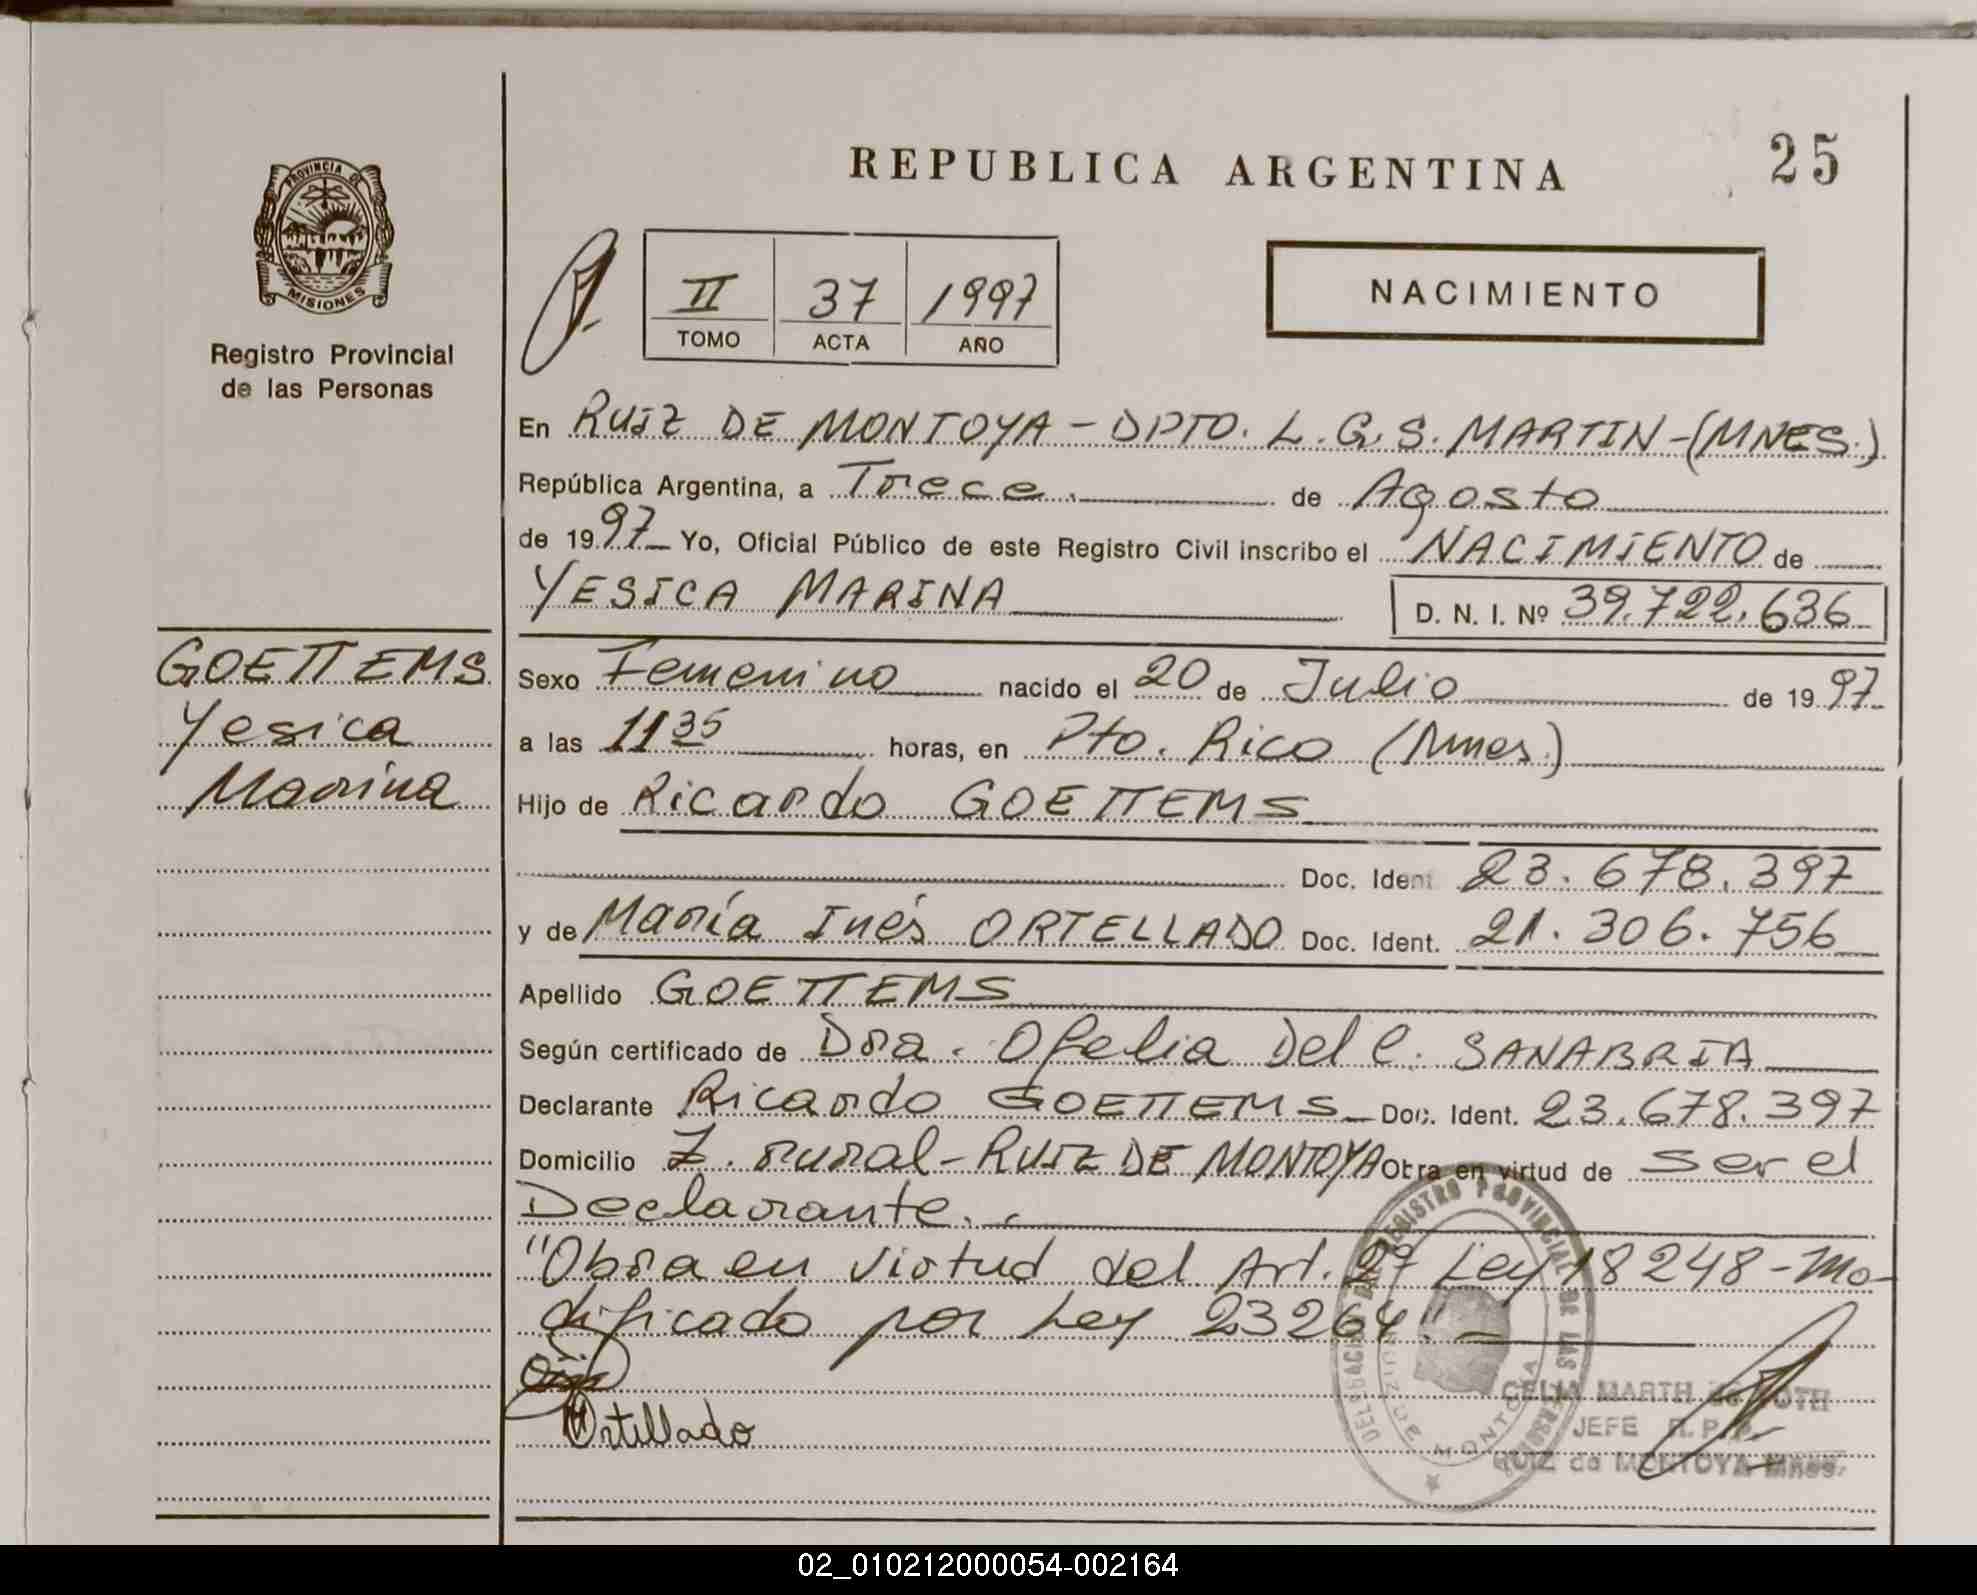 REPUBLICA ARGENTINA
25
PROVINCIA DE
MISIONES
Registro Provincial
de las Personas
II 37 1997
TOMO ACTA AÑO
NACIMIENTO
En RUIZ DE MONTOYA - DPTO. L. G. S. MARTIN - (MNES.)
República Argentina, a Trece. de Agosto
de 1997 Yo, Oficial Público de este Registro Civil inscribo el NACIMIENTO de
YESICA MARINA D. N. I. Nº 39.722.636
GOETTEMS
Yesica
Marina
Sexo Femenino nacido el 20 de Julio de 1997
a las 11 35 horas, en Pto. Rico (Mnes.)
Hijo de Ricardo GOETTEMS
Doc. Ident 23.678.397
y de María Inés ORTELLADO Doc. Ident. 21.306.756
Apellido GOETTEMS
Según certificado de Dra. Ofelia Del C. SANABRIA
Declarante Ricardo GOETTEMS Doc. Ident. 23.678.397
Domicilio Z. rural - RUIZ DE MONTOYA Obra en virtud de ser el
Declarante.
"Obra en virtud del Art. 2º Ley 18248 - Mo-
dificado por Ley 23264."
Ortellado
REGISTRO PROVINCIAL DE LAS PERSONAS
RUIZ DE MONTOYA
CELIA MARTH de ROTH
JEFE R.P.P.
RUIZ de MONTOYA Mnes.
02_010212000054-002164